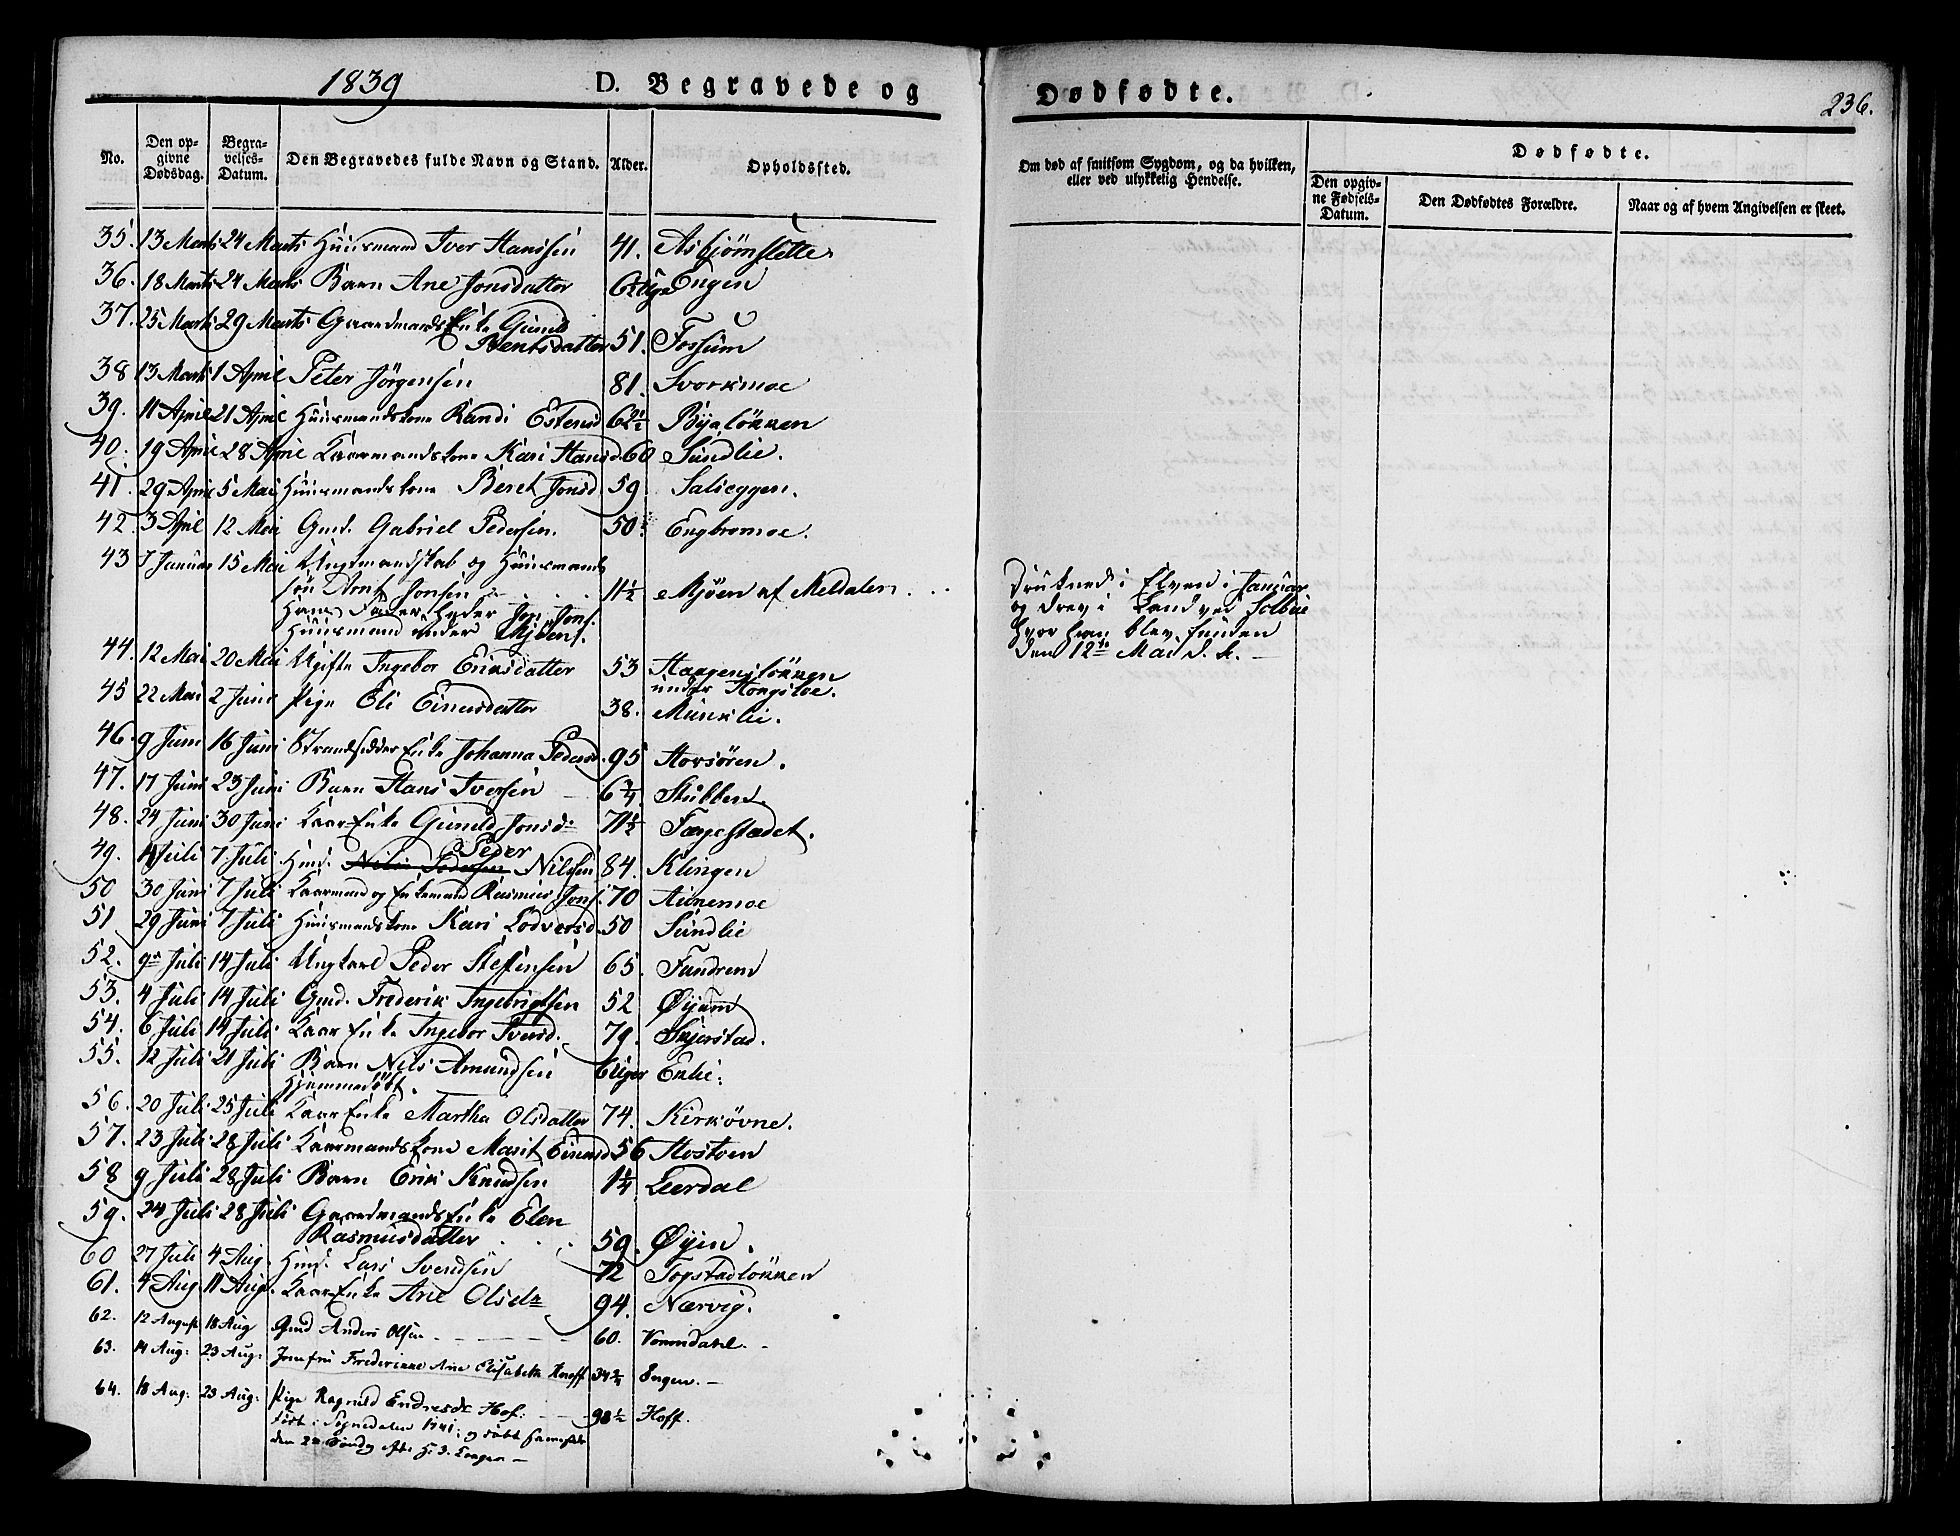 1839 D. Begravede og Dødfødte. 236.
No. Den opgivne Dødsdag. Begravelses-Datum. Den Begravedes fulde Navn og Stand. Alder. Opholdssted.
Om død af smitsom Sygdom, og da hvilken, eller ved ulykkelig Hendelse.
Dødfødte.
Den opgivne Fødsels-Datum. Den Dødfødtes Forældre. Naar og af hvem Angivelsen er skeet.
35. 13 Marts 24 Marts Huusmand Iver Hanssen 41. Asbjørnslette
36. 18 Marts 24 Marts Barn Ane Jonsdatter Engen
37. 25 Marts 29 Marts Gaardmands Enke Gunild
Bentsdatter 51. Fossum
38 13 Marts 1 April Peter Jörgensen 81. Svorkmoe
39. 11 April 21 April Huusmandskone Randi Estensd 62½ Byeløkken
40. 19 April 28 April Kaarmandskone Kari Hansd. 60 Sundlie.
41. 29 April 5 Mai Huusmandskone Beret Jonsd 59. Salieggen.
42. 3 April 12 Mai Gmd. Gabriel Pedersen. 50 Engbromoe.
43 7 Januar 15 Mai Ungmandskab og Huusmands
søn Arnt Jonsen 11½ Mjöen af Meldalen
Hans Fader heder Jon Jons.
Huusmand under Mjöen.
Druknede i Elven i Januar
og drev i Land ved Solbue
hvor han blev funden
den 12te Mai d. A.
44. 12 Mai 20 Mai Ugifte Ingebor Eriksdatter 53 Haagensløkken
under Hongsloe.
45 22 Mai 2 Juni Pige Eli Einersdatter 38. Munklie.
46. 9 Juni 16 Juni Strandsidder Enke Johanna Pedersd. 95 Horsören.
47. 17 Juni 23 Juni Barn Hans Iversen 6¾ Stubben.
48. 24 Juni 30 Juni Kaar Enke Gunild Jonsdr 71½ Fargestadet.
49. 4 Juli 7 Juli Hmd. Nils Pedersen Peder Nilssen 84. Klingen
50 30 Juni 7 Juli Kaarmand og Enkemand Rasmus Jons. 70 Aunemoe
51 29 Juni 7 Juli Huusmandskone Kari Lodversd. 50 Sundlie
52. 9de Juli 14 Juli Ungkarl Peder Steffensen 65. Fandrem
53. 4 Juli 14 Juli Gmd. Frederik Ingebrigtsen 52 Øyum
54. 6 Juli 14 Juli Kaar Enke Ingebor Iversd. 79. Skjerstad.
55. 12 Juli 21 Juli Barn Nils Amundsen 6 Uger Enlie.
Hjemmedøbt.
56. 20 Juli 25 Juli Kaar Enke Martha Olsdatter 74. Kirkövne.
57. 23 Juli 28 Juli Kaarmandskone Marit Einersd 56 Hostoen
58 9 Juli 28 Juli Barn Erik Knudsen 1¼ Leerdal
59. 24 Juli 28 Juli Gaardmands Enke Elen
Rasmusdatter 59. Øyen.
60 27 Juli 4 Aug. Hmd. Lars Svendsen 72 Togstadløkken
61. 4 Aug. 11 Aug. Kaar Enke Ane Olsdr 94. Nærvig.
62. 12 August 18 Aug Gmd Anders Olsen 60. Vormdahl.
63. 14 Aug. 23 Aug. Jomfru Frederikke Ane Elisabeth Hoff 34¾ Engen.
64. 18 Aug. 23 Aug. Pige Ragnild Endresdr Hof. 98½ Hoff.
født i Sognedalen 1741. og døbt